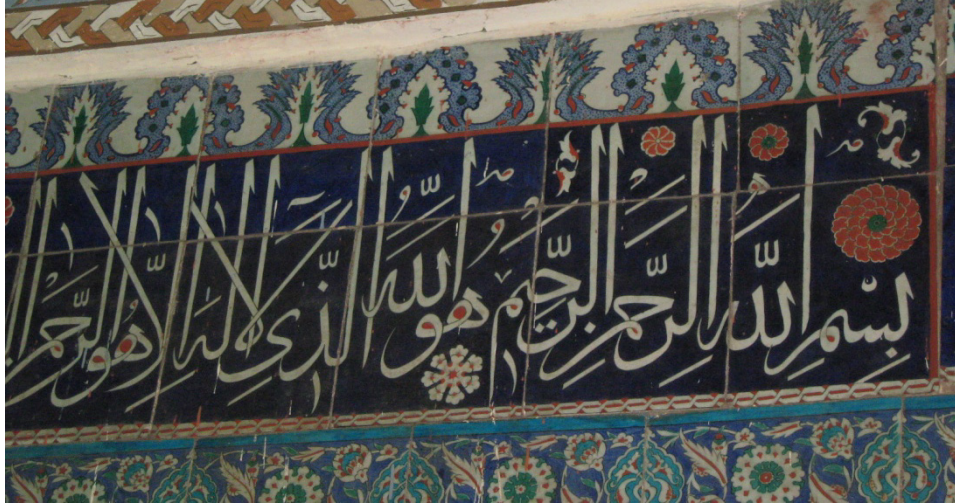 بسم الله الرحمن الرحيم هو الله الذي لا إله إلا هو الرحمن